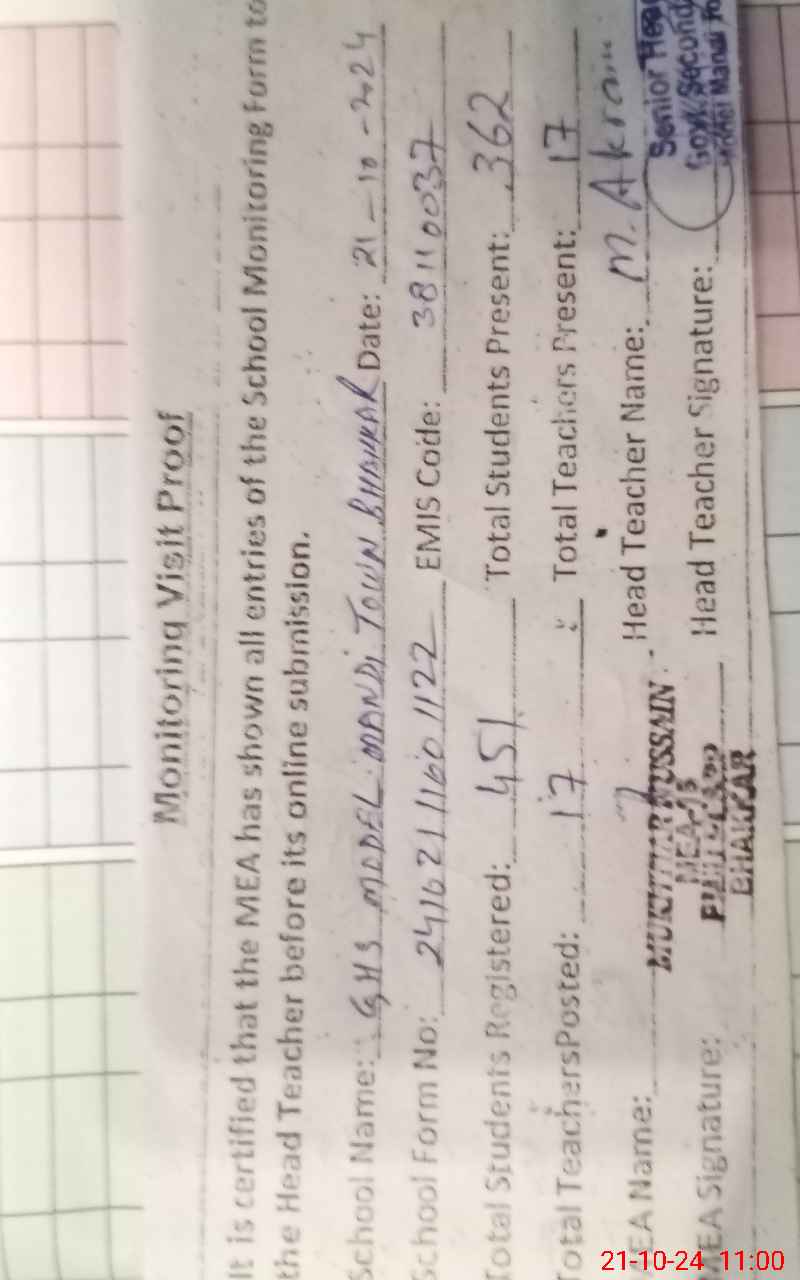 Monitoring Visit Proof
It is certified that the MEA has shown all entries of the School Monitoring Form to
the Head Teacher before its online submission.
School Name: GHS MODEL MANDI TOWN BHAKKAR Date: 21-10-2024
School Form No: 24162111601122 EMIS Code: 38110037
Total Students Registered: 451 Total Students Present: 362
Total TeachersPosted: 17 Total Teachers Present: 17
MEA Name: MUKHTIAR HUSSAIN Head Teacher Name: M. Akram
MEA Signature: BHAKKAR Head Teacher Signature:
Senior Head
Govt. Second
21-10-24 11:00